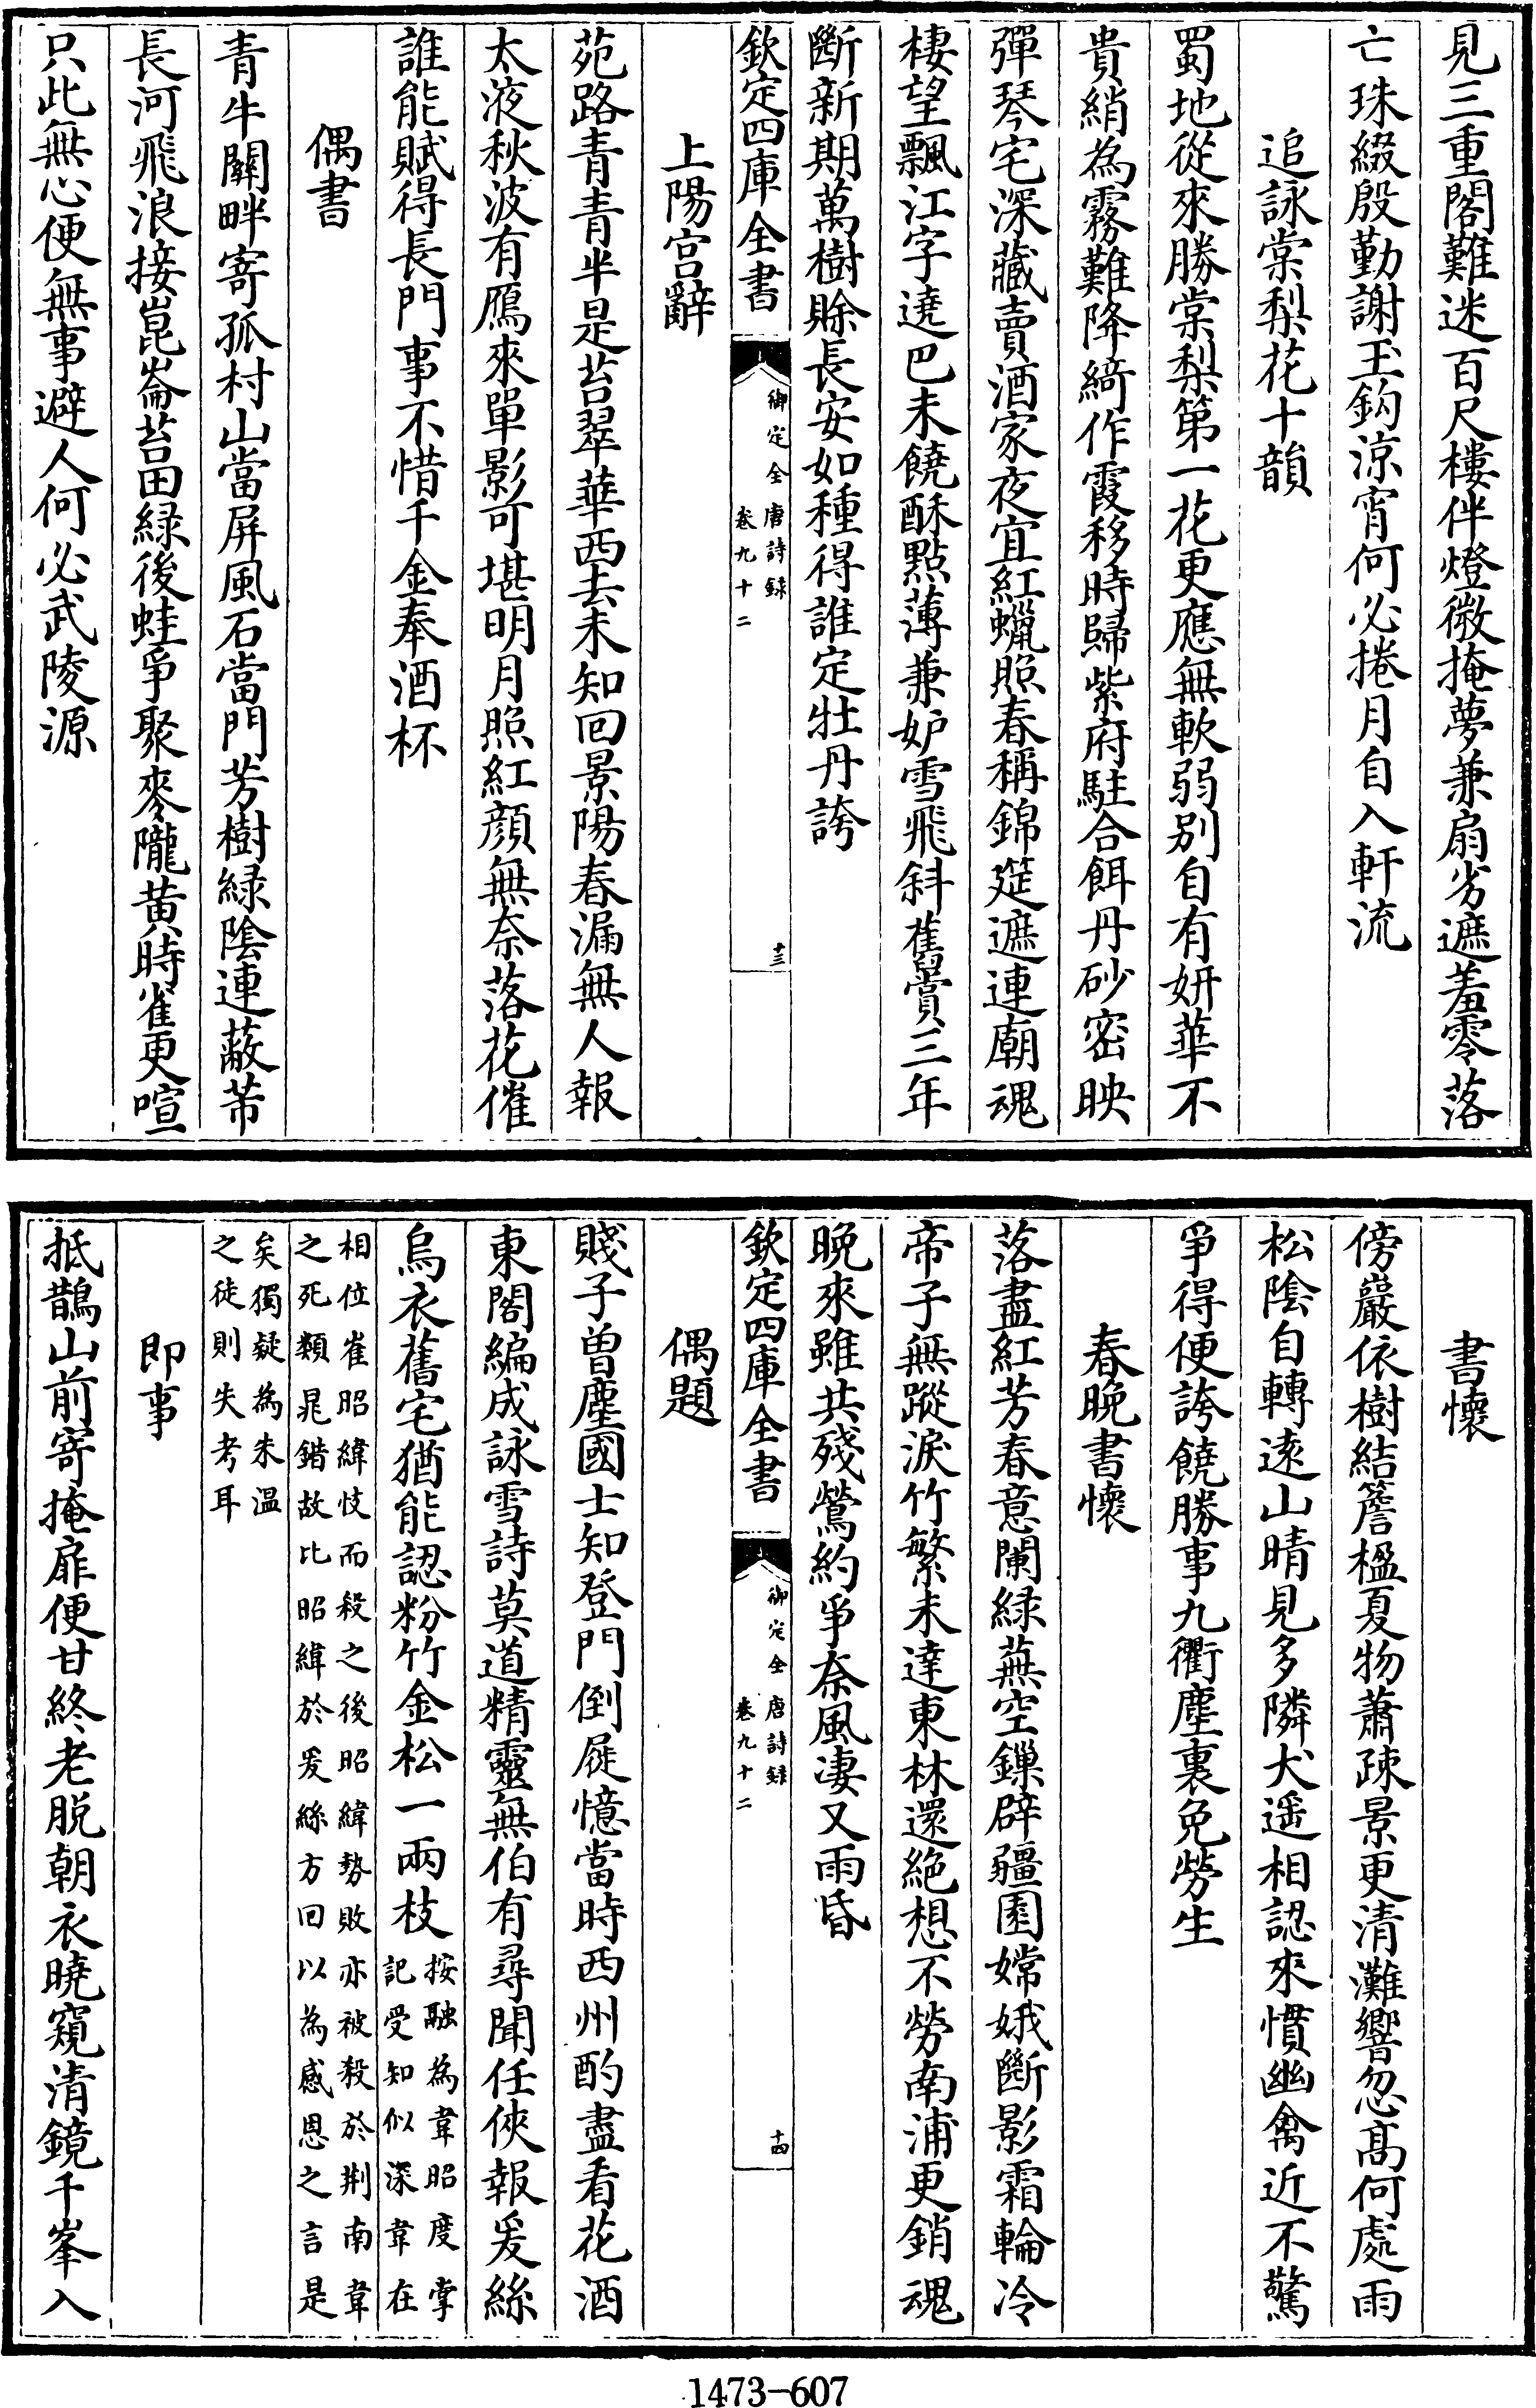 見三重閣難迷百尺樓伴燈微掩夢兼扇劣遮羞零落
亡珠綴殷勤謝玉鈎涼宵何必捲月自入軒流
追詠棠梨花十韻
蜀地從來勝棠梨第一花更應無軟弱别自有妍華不
貴綃為霧難降綺作霞移時歸紫府駐合餌丹砂密映
彈琴宅深藏賣酒家夜宜紅蠟照春稱錦筵遮連廟魂
棲望飄江字遶巴未饒酥㸃薄兼妒雪飛斜舊賞三年
斷新期萬樹賖長安如種得誰定牡丹誇
欽定四庫全書
御定全唐詩録
卷九十二
十三
上陽宫辭
苑路青青半是苔翠華西去未知回景陽春漏無人報
太液秋波有鴈來單影可堪明月照紅顔無奈落花催
誰能賦得長門事不惜千金奉酒杯
偶書
青牛闗畔寄孤村山當屏風石當門芳樹緑陰連蔽芾
長河飛浪接崑崙苔田緑後蛙爭聚麥隴黄時雀更喧
只此無心便無事避人何必武陵源
書懷
傍巖依樹結簷楹夏物蕭疎景更清灘響忽髙何處雨
松陰自轉逺山晴見多隣犬遥相認來慣幽禽近不驚
爭得便誇饒勝事九衢塵裏免勞生
春晚書懷
落盡紅芳春意闌緑蕪空鏁辟疆園嫦娥斷影霜輪冷
帝子無蹤淚竹繁未達東林還絶想不勞南浦更銷魂
晚來雖共殘鶯約爭奈風凄又雨昏
欽定四庫全書
御定全唐詩録
卷九十二
十四
偶題
賤子曽塵國士知登門倒屣憶當時西州酌盡看花酒
東閣編成詠雪詩莫道精靈無伯有尋聞任俠報爰絲
烏衣舊宅猶能認粉竹金松一兩枝
按融為韋昭度掌
記受知似深韋在
相位崔昭緯忮而殺之後昭緯勢敗亦被殺於荆南韋
之死類鼂錯故比昭緯於爰絲方回以為感恩之言是
矣獨疑為朱温
之徒則失考耳
即事
抵鵲山前寄掩扉便甘終老脱朝衣曉窺清鏡千峯入
1473-607